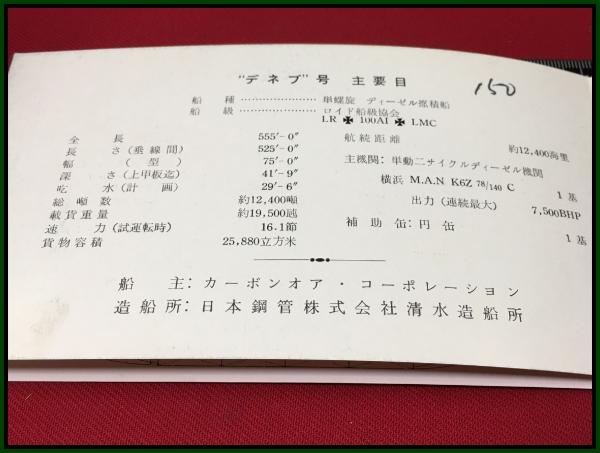 "デネブ"号 主要目
150
船種 ………………… 単螺旋 ディーゼル撒積船
船級 ………………… ロイド船級協会
LR ✠ 100AI ✠ LMC
全長 555'-0"
長さ(垂線間) 525'-0"
幅(型) 75'-0"
深さ(上甲板迄) 41'-9"
吃水(計画) 29'-6"
総噸数 約12,400噸
載貨重量 約19,500瓲
速力(試運転時) 16.1節
貨物容積 25,880立方米
航続距離 約12,400海里
主機関: 単動二サイクルディーゼル機関
横浜 M.A.N K6Z 78/140 C 1基
出力(連続最大) 7,500BHP
補助缶: 円缶 1基
船主: カーボンオア・コーポレーション
造船所: 日本鋼管株式会社清水造船所